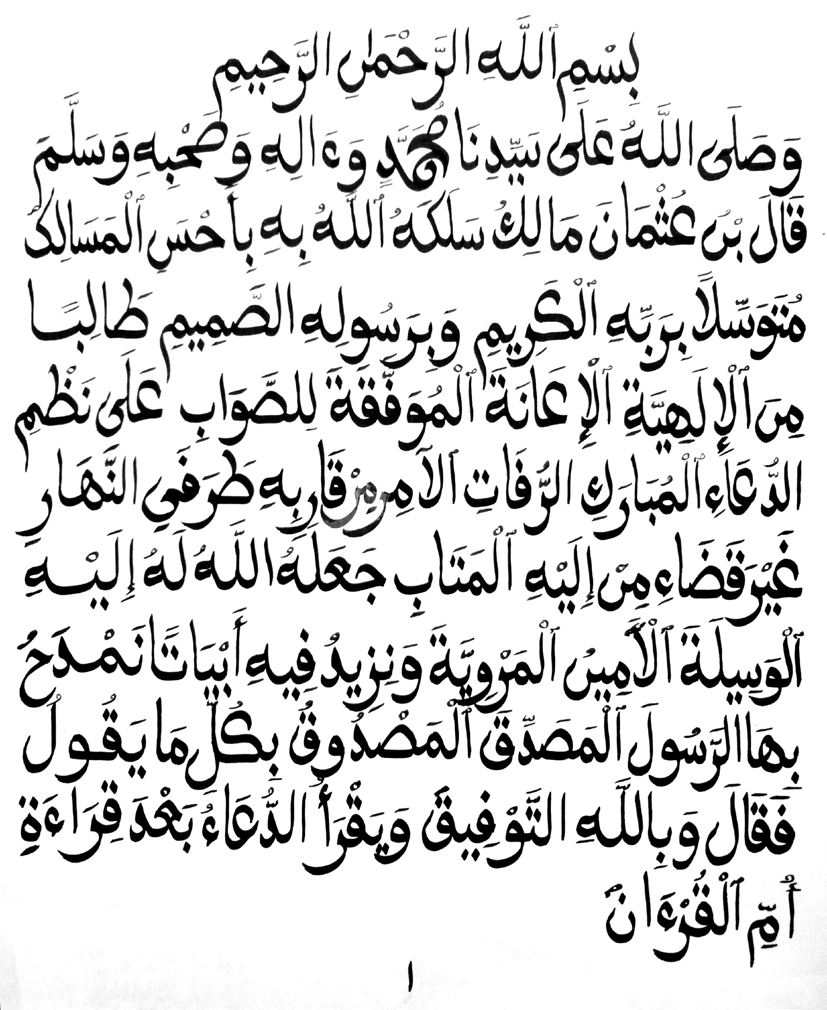 بِسْمِ ٱللَّهِ الرَّحْمَٰنِ الرَّحِيمِ
وَصَلَّى اللَّهُ عَلَى سَيِّدِنَا مُحَمَّدٍ وَءَالِهِ وَصَحْبِهِ وَسَلَّمَ
قَالَ بْنُ عُثْمَانَ مَالِكُ سَلَكَهُ ٱللَّهُ بِهِ بِأَحْسَنِ ٱلْمَسَالِكُ
مُتَوَسِّلًا بِرَبِّهِ ٱلْكَرِيمِ وَبِرَسُولِهِ الصَّمِيمِ طَالِبًا
مِنَ ٱلْإِلَهِيَّةِ ٱلْإِعَانَةَ ٱلْمُوَفِّقَةَ لِلصَّوَابِ عَلَى نَظْمِ
الدُّعَاءِ ٱلْمُبَارَكِ الرُّفَاتِ ٱلْآمِرِ مِنْ قَارِبِهِ طَرَفَيِ النَّهَارِ
غَيْرَ قَضَاءِ مِنْ إِلَيْهِ ٱلْمَتَابِ جَعَلَهُ اللَّهُ لَهُ إِلَيْهِ
ٱلْوَسِيلَةَ ٱلْأَمِينُ ٱلْمَرْوِيَّةَ وَنِزِيدُ فِيهِ أَبْيَاتًا نَمْدَحُ
بِهَا الرَّسُولَ ٱلْمَصَدِّقَ ٱلْمَصْدُوقُ بِكُلِّ مَا يَقُولُ
فَقَالَ وَبِاللَّهِ التَّوْفِيقَ وَيَقْرَأُ الدُّعَاءُ بَعْدَ قِرَاءَةِ
أُمِّ ٱلْقُرْءَانْ
١